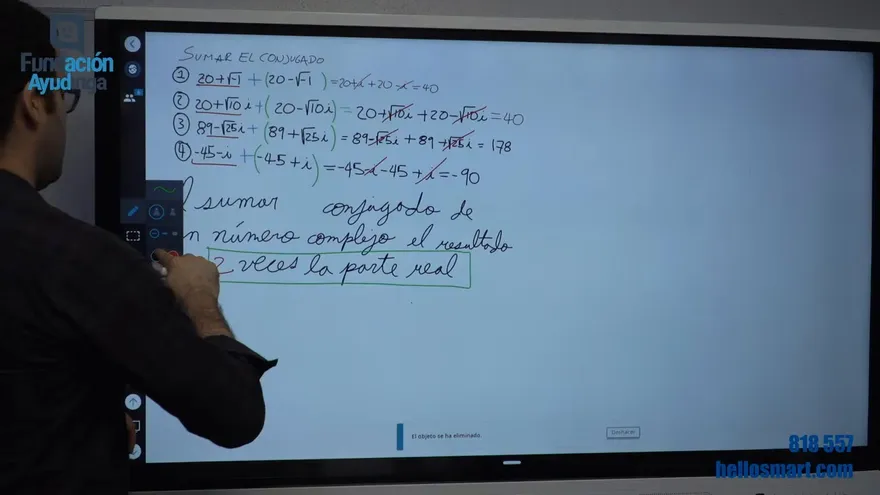 Fundación
Ayudinga
SUMAR EL CONJUGADO
① 20+√-1 + (20-√-1) = 20+i + 20-i = 40
② 20+√10 i + (20-√10i) = 20+√10i + 20-√10i = 40
③ 89-√25i + (89+√25i) = 89-√25i + 89+√25i = 178
④ -45-i + (-45+i) = -45-i -45+i = -90
l sumar conjugado de
n número complejo el resultado
2 veces la parte real
El objeto se ha eliminado.
Deshacer
818 557
hellosmart.com